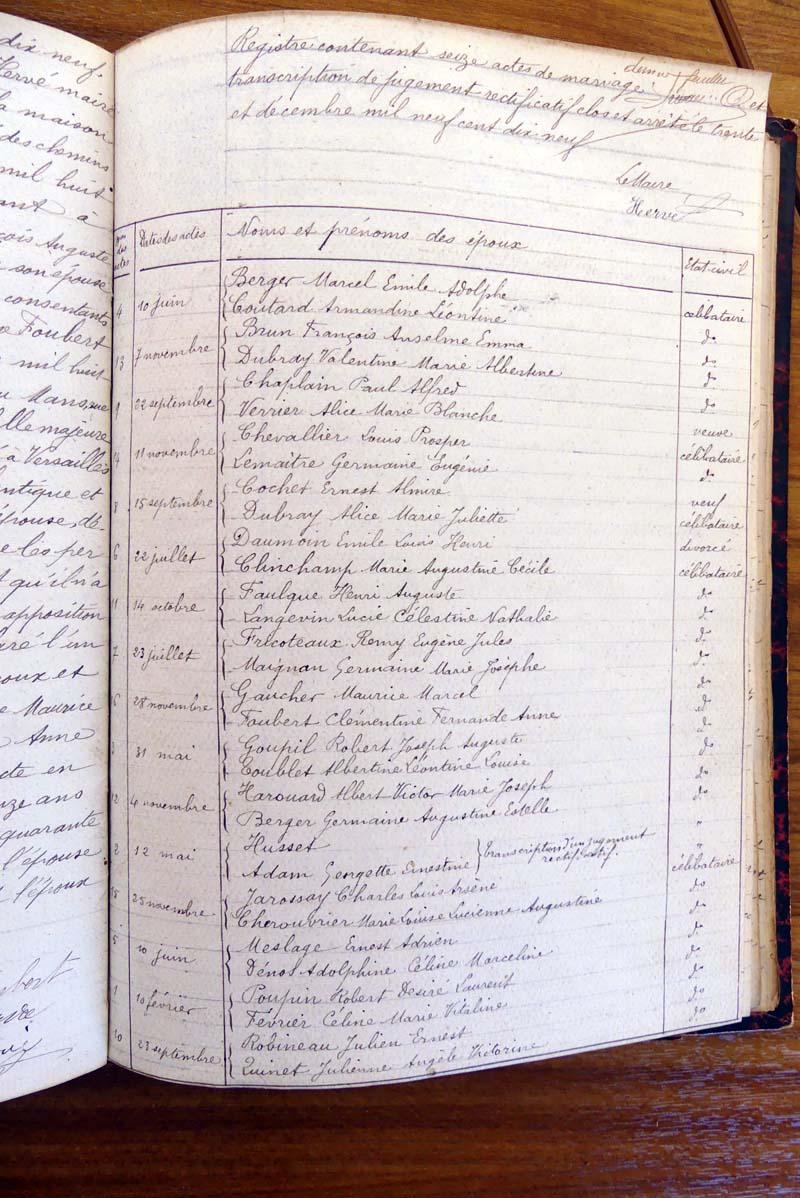 dix neuf.
Hervé maire
la maison
des chemins
mil huit
ant à
çois Auguste
son épouse
consentants
Foubert
mil huit
u Mans, rue
lle majeure
é à Versailles
entique et
épouse, dé-
e les per
t qu'il n'a
apposition
ré l'un
oux et
e Maurice
Anne
cte en
ze ans
quarante
l'épouse
l'époux
Registre contenant seize actes de mariage et
transcription de jugement rectificatif clos et arrêté le trente
et décembre mil neuf cent dix neuf
Le Maire
Hervé
Nos des actes Dates des actes Noms et prénoms des époux Etat-civil
4 10 juin Berger Marcel Emile Adolphe
Coutard Armandine Léontine célibataire
13 7 novembre Brun François Anselme Emma do
Dubray Valentine Marie Albertine do
9 22 septembre Chaplain Paul Alfred do
Verrier Alice Marie Blanche do
14 11 novembre Chevallier Louis Prosper veuve
Lemaître Germaine Eugénie célibataire
8 15 septembre Cochet Ernest Almire do
Dubray Alice Marie Juliette veuf
célibataire
6 22 juillet Daumoin Emile Louis Henri divorcé
Clinchamp Marie Augustine Cécile célibataire
11 14 octobre Faulque Henri Auguste do
Langevin Lucie Célestine Nathalie do
7 23 juillet Fricoteaux Remy Eugène Jules do
Maignan Germaine Marie Josèphe do
28 novembre Gaucher Maurice Marcel do
Foubert Clémentine Fernande Anne do
3 31 mai Goupil Robert Joseph Auguste do
Coublet Albertine Léontine Louise do
12 4 novembre Harouard Albert Victor Marie Joseph do
Berger Germaine Augustine Estelle do
2 12 mai Husset "
Adam Georgette Ernestine transcription d'un jugement "
rectificatif.
15 25 novembre Jarossay Charles Louis Arsène célibataire
Cherouvrier Marie Louise Lucienne Augustine do
5 10 juin Meslage Ernest Adrien do
Dénos Adolphine Céline Marceline do
1 10 février Poupin Robert Désiré Laurent do
Février Céline Marie Vitaline do
10 23 septembre Robineau Julien Ernest do
Quinet Julienne Angèle Victorine do